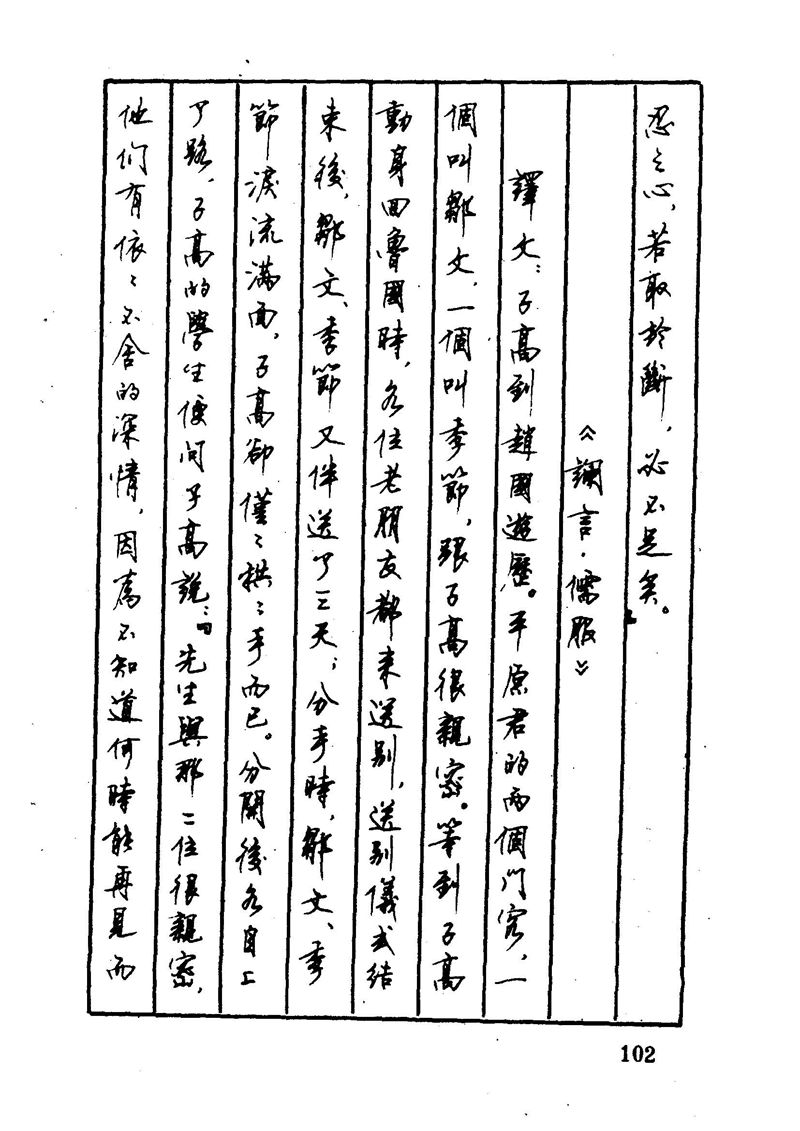 忍之心，若取於斷，必不足矣。
《讕言·儒服》
譯文：子高到趙國遊歷。平原君的兩個門客，一
個叫鄒文，一個叫季節，跟子高很親密。等到子高
動身回魯國時，各位老朋友都來送别，送别儀式結
束後，鄒文、季節又伴送了三天；分手時，鄒文、季
節淚流滿面，子高卻僅〻拱〻手而已。分開後各自上
了路，子高的學生便問子高說：“先生與那二位很親密，
他們有依〻不舍的深情，因爲不知道何時能再見而
102